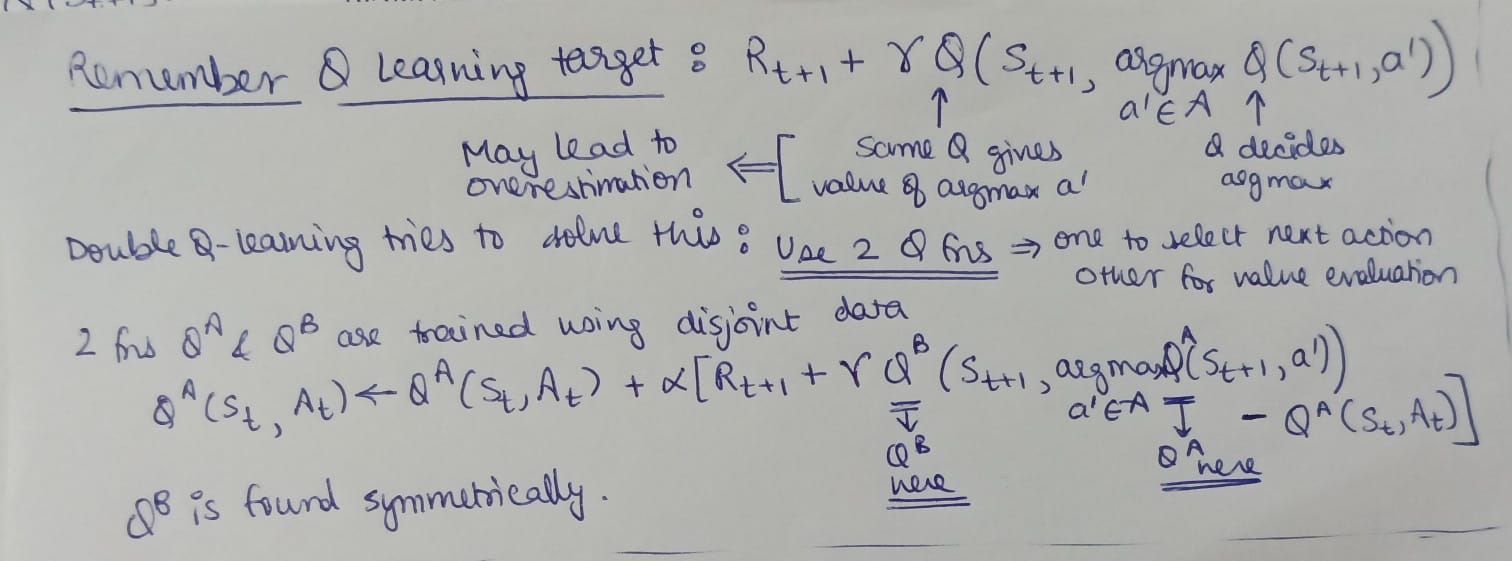 Remember Q Learning target : R_{t+1} + γ Q(S_{t+1}, argmax Q(S_{t+1}, a'))
a'∈A
↑ ↑
May lead to ⇐ [ Same Q gives Q decides
overestimation value of argmax a' argmax
Double Q-learning tries to solve this : Use 2 Q fns ⇒ one to select next action
Other for value evaluation
2 fns Q^A & Q^B are trained using disjoint data
Q^A(S_t, A_t) ← Q^A(S_t, A_t) + α[R_{t+1} + γ Q^B(S_{t+1}, argmax Q^A(S_{t+1}, a'))
a'∈A - Q^A(S_t, A_t)]
Q^B Q^A here
here
Q^B is found symmetrically.